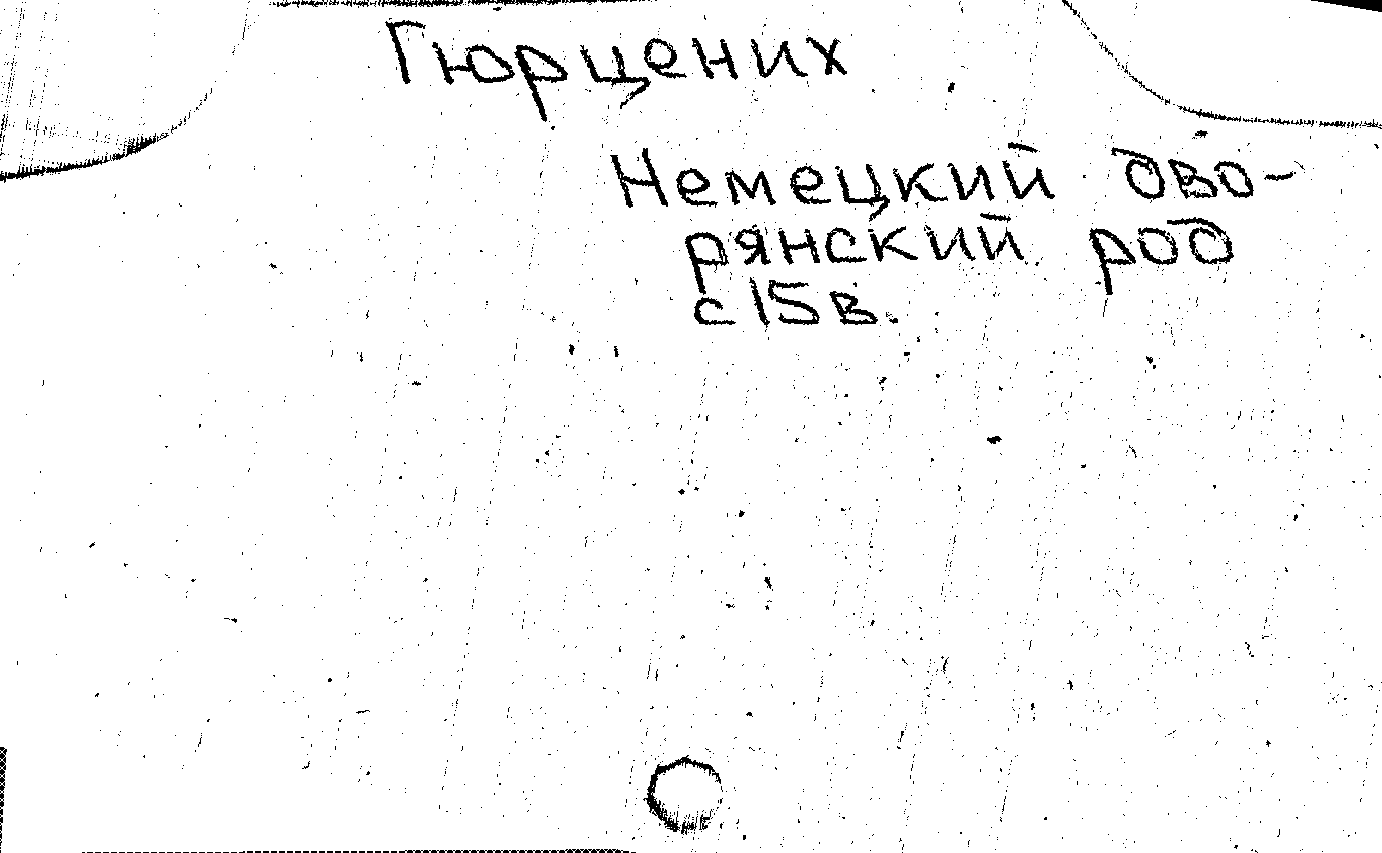 Гюрцених
Немецкий дво-
рянский род
с 15 в.